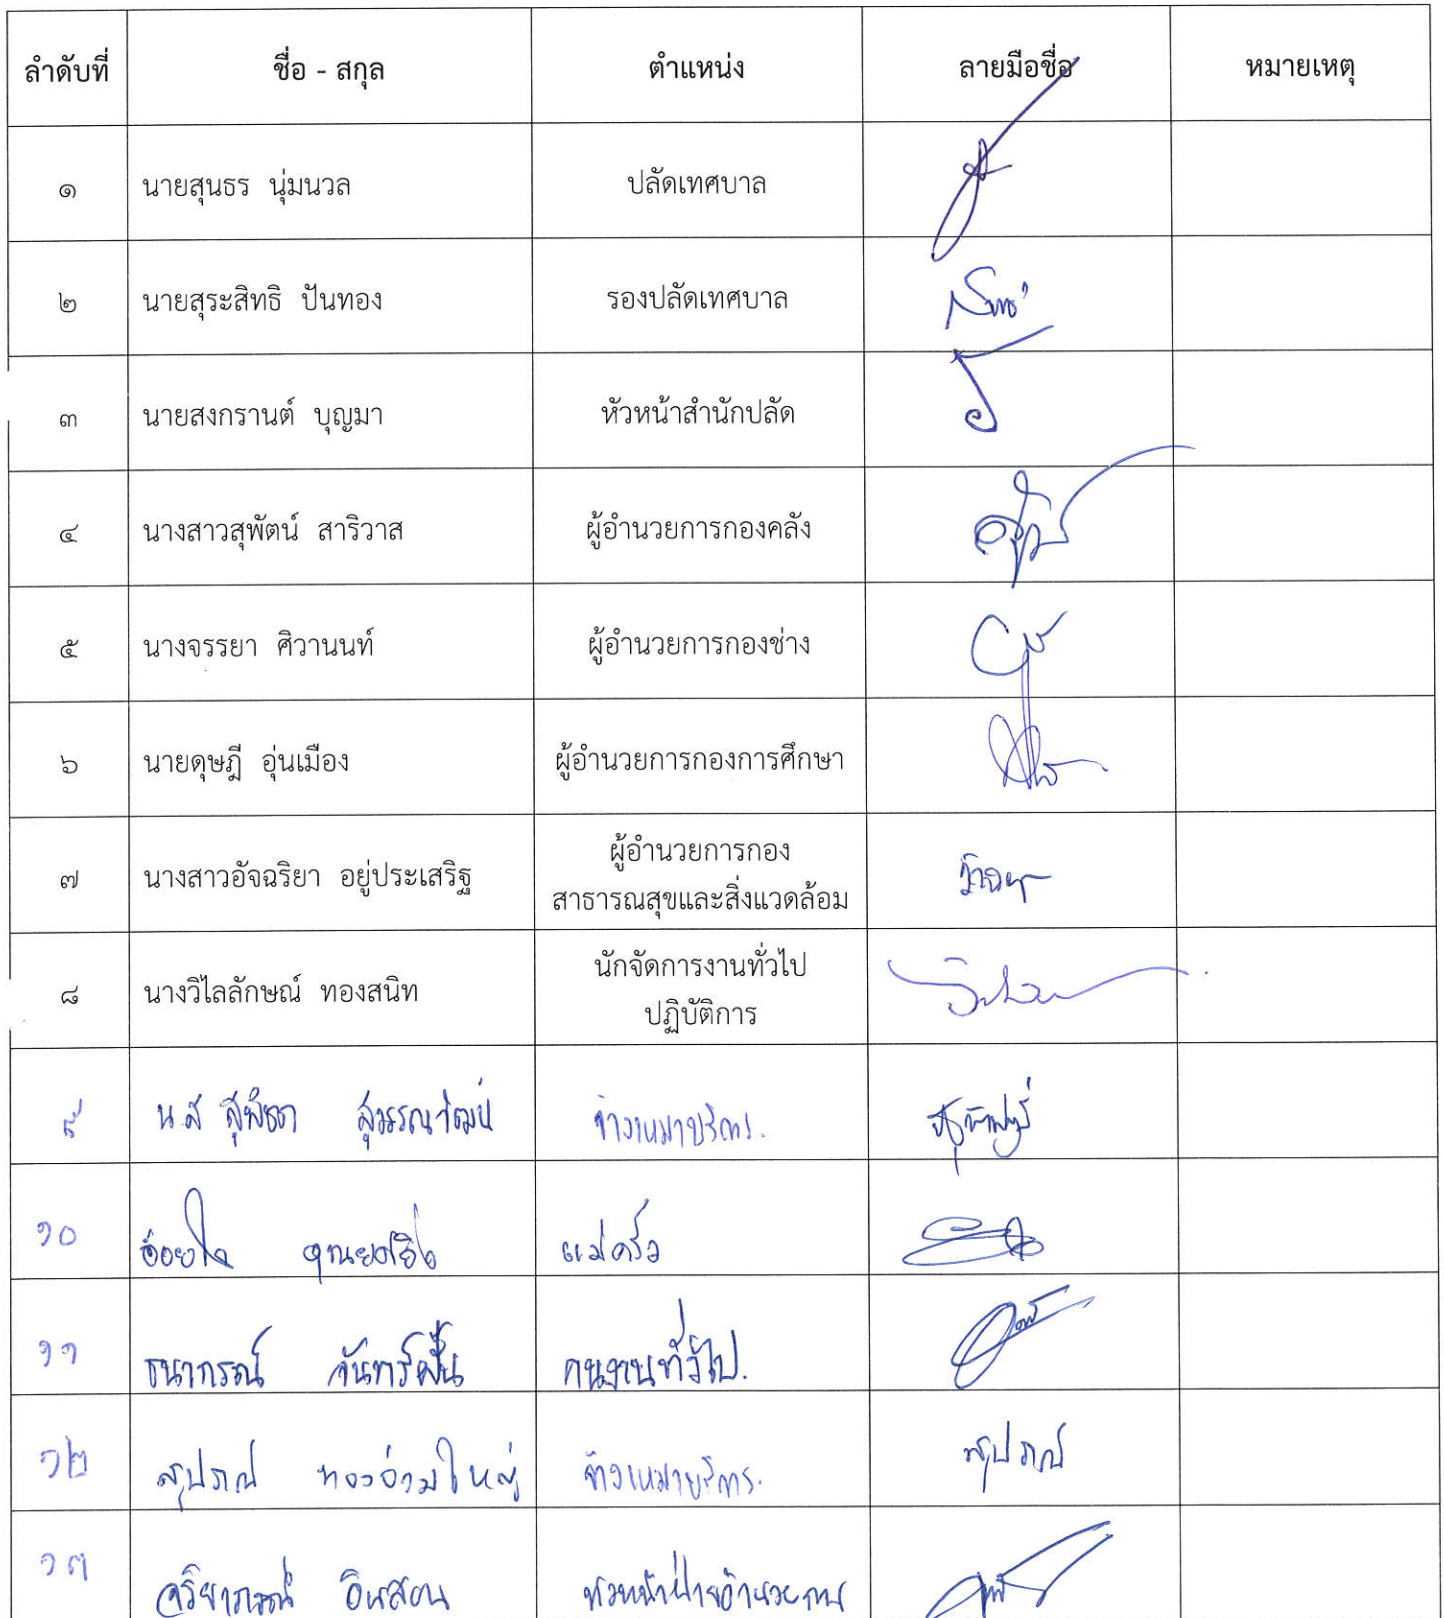 ลำดับที่ ชื่อ - สกุล ตำแหน่ง ลายมือชื่อ หมายเหตุ
๑ นายสุนธร นุ่มนวล ปลัดเทศบาล
๒ นายสุระสิทธิ ปันทอง รองปลัดเทศบาล
๓ นายสงกรานต์ บุญมา หัวหน้าสำนักปลัด
๔ นางสาวสุพัตน์ สาริวาส ผู้อำนวยการกองคลัง
๕ นางจรรยา ศิวานนท์ ผู้อำนวยการกองช่าง
๖ นายดุษฎี อุ่นเมือง ผู้อำนวยการกองการศึกษา
๗ นางสาวอัจฉริยา อยู่ประเสริฐ ผู้อำนวยการกอง
สาธารณสุขและสิ่งแวดล้อม
๘ นางวิไลลักษณ์ ทองสนิท นักจัดการงานทั่วไป
ปฏิบัติการ
๙ น.ส จ้างเหมาบริการ.
๑๐ อ้อยใจ แม่ครัว
๑๑ ธนากรณ์ จันทร์ฝั้น คนงานทั่วไป.
๑๒ สุปราณี ทองอ่วมใหญ่ จ้างเหมาบริการ.
๑๓ จริยาภรณ์ อินสอน หัวหน้าฝ่ายอำนวยการ